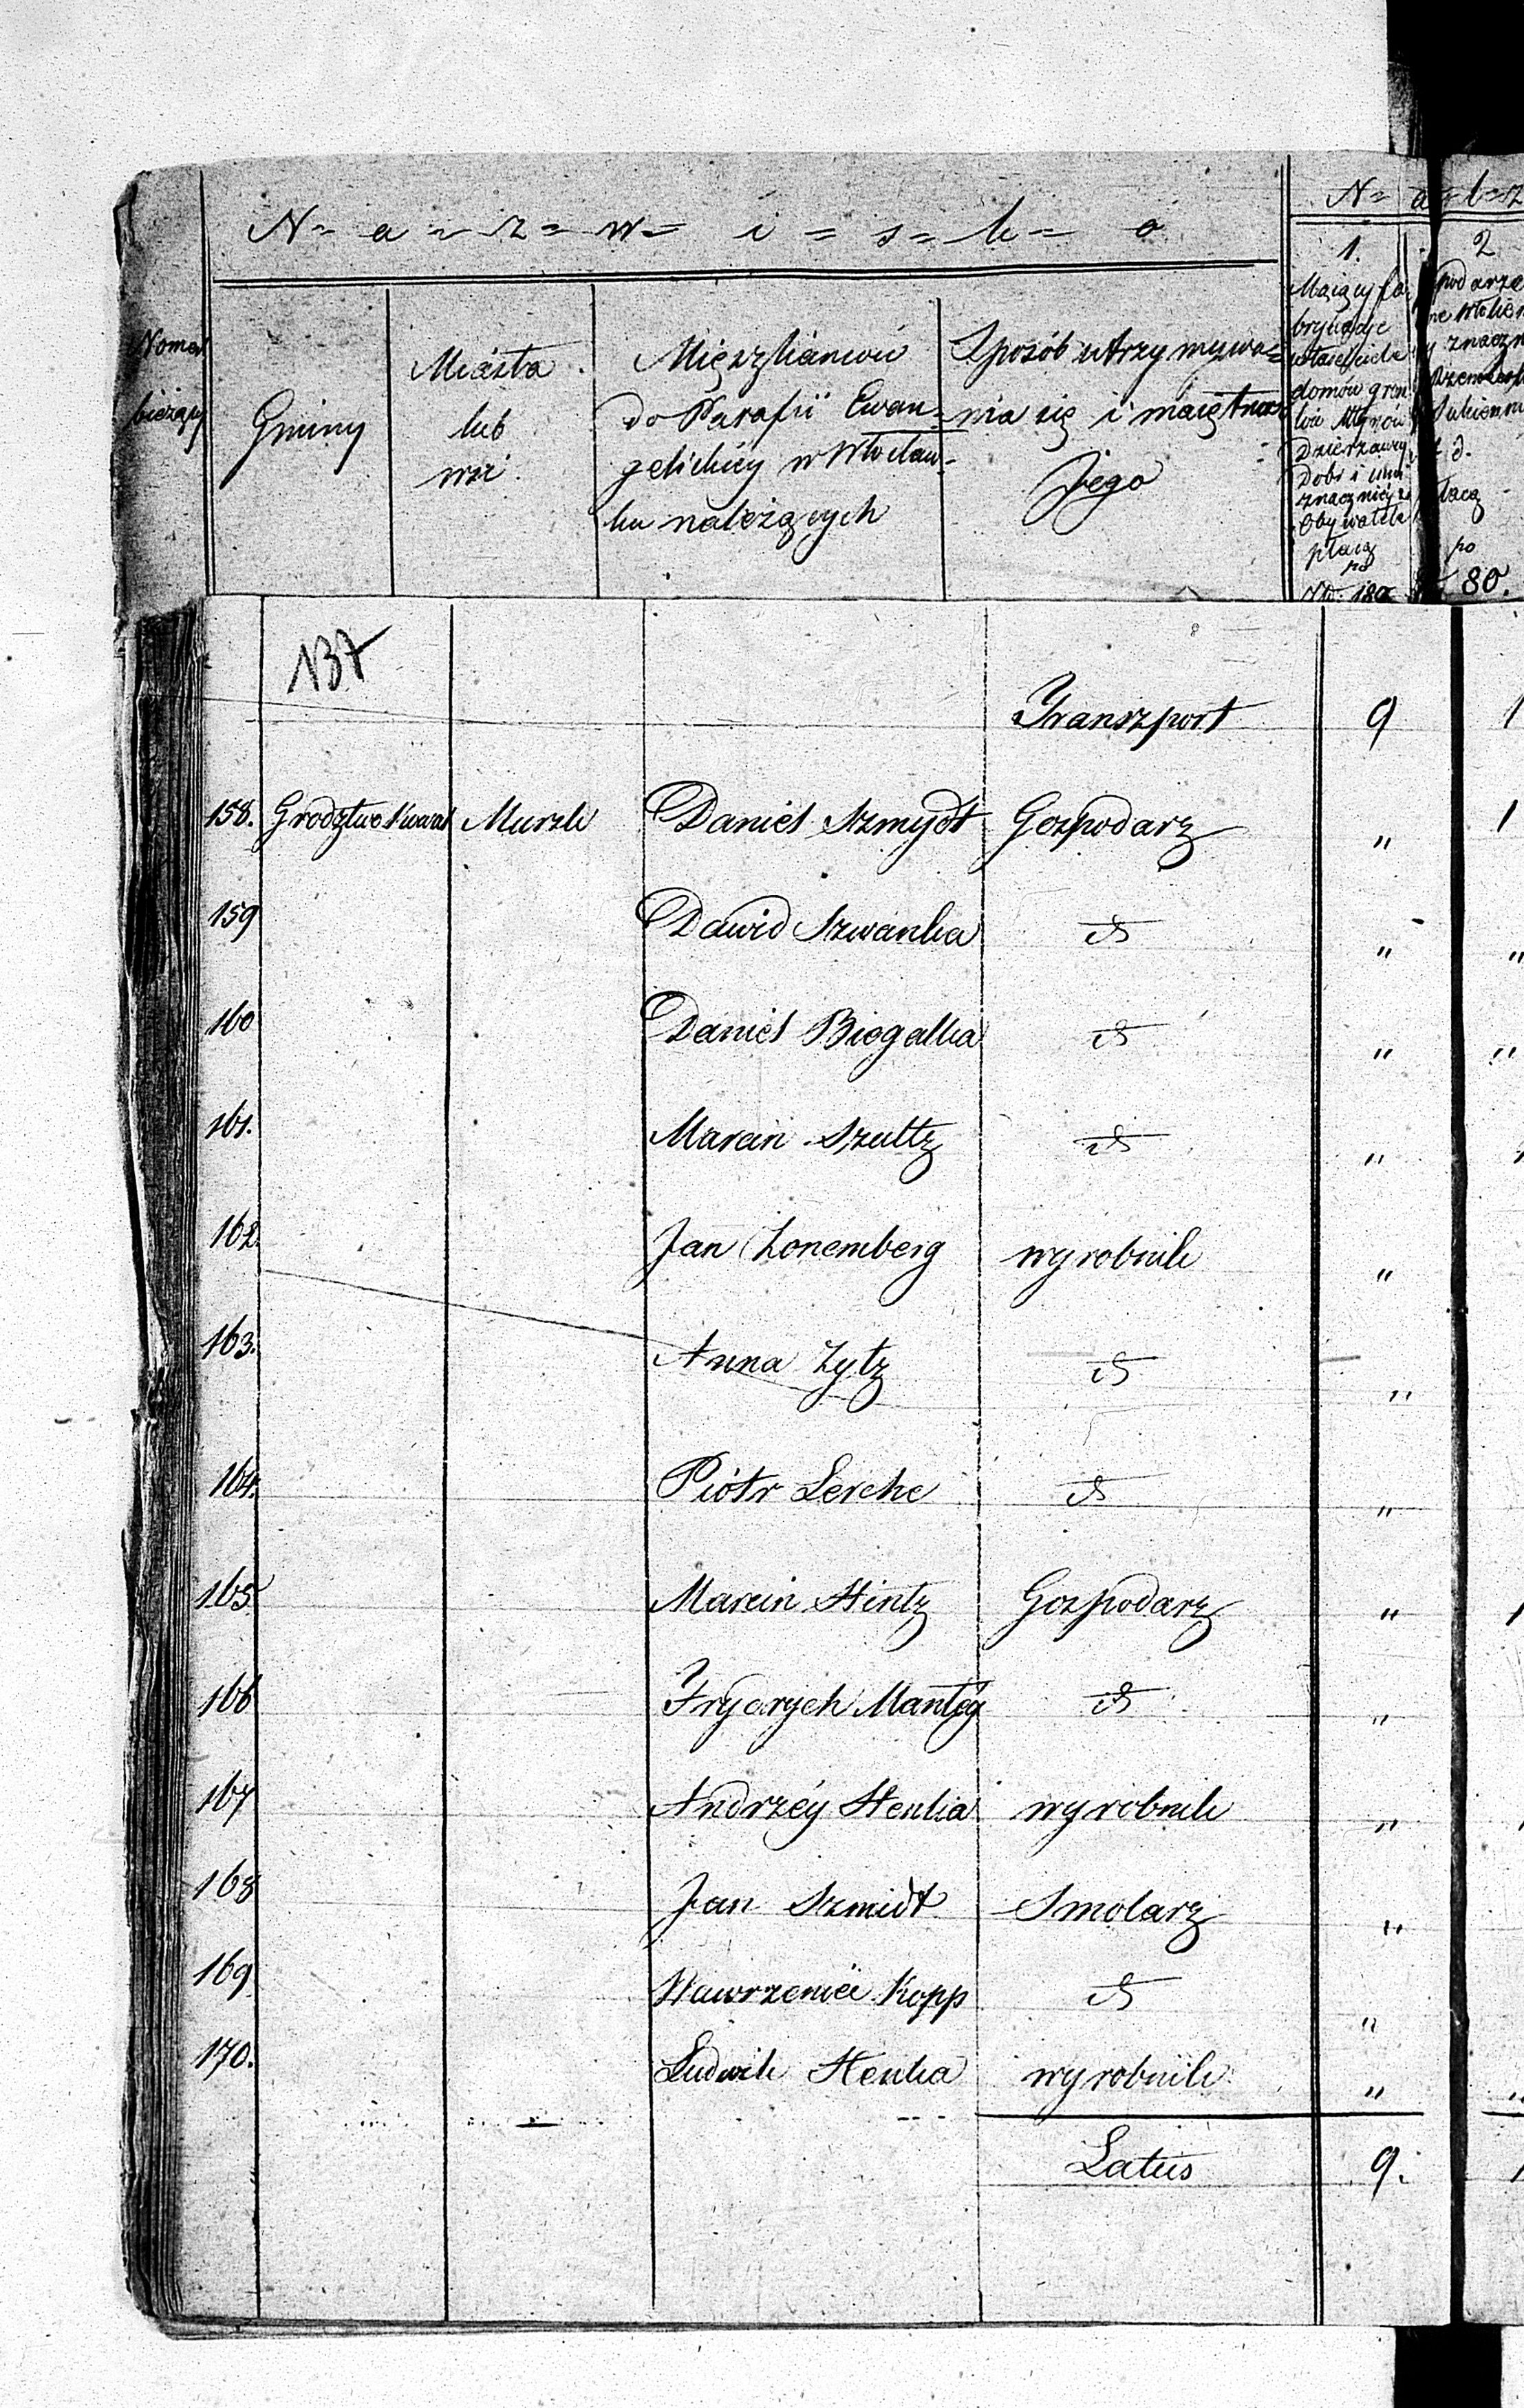 N= a = z = w = i = s = k = o
N= a = l = z
Nomer
bieżący
Gminy
Miasta
lub
wsi
Mięszkańców
do Parafii Ewan-
gelickiey w Włocław-
ku należących
Sposób utrzymywa=
nia się i maiętnos
Jego
1.
Maiący fa
bryki
domów gron
Dzierzawcy
Dobr i inni
znacznieysi
Obywatele
płacą
po
180
2
płacą
po
80.
137
Transzport 9 1
158. Grodztwo Kowal Murzk Daniel Szmydt Gospodarz " 1
159 Dawid Szwanka d " "
160 Daniel Biegalka d " "
161. Marcin Szultz d "
162. Jan Zonemberg wyrobnik "
163. Anna Zytz d "
164. Piotr Lerche d "
165 Marcin Hintz Gospodarz " 1
166 Frydrych Mantey d "
167 Andrzéy Henka wyrobnik "
168 Jan Szmidt Smolarz "
169 Wawrzeniec Kopp d "
170. Ludwik Henka wyrobnik " "
Latus 9.